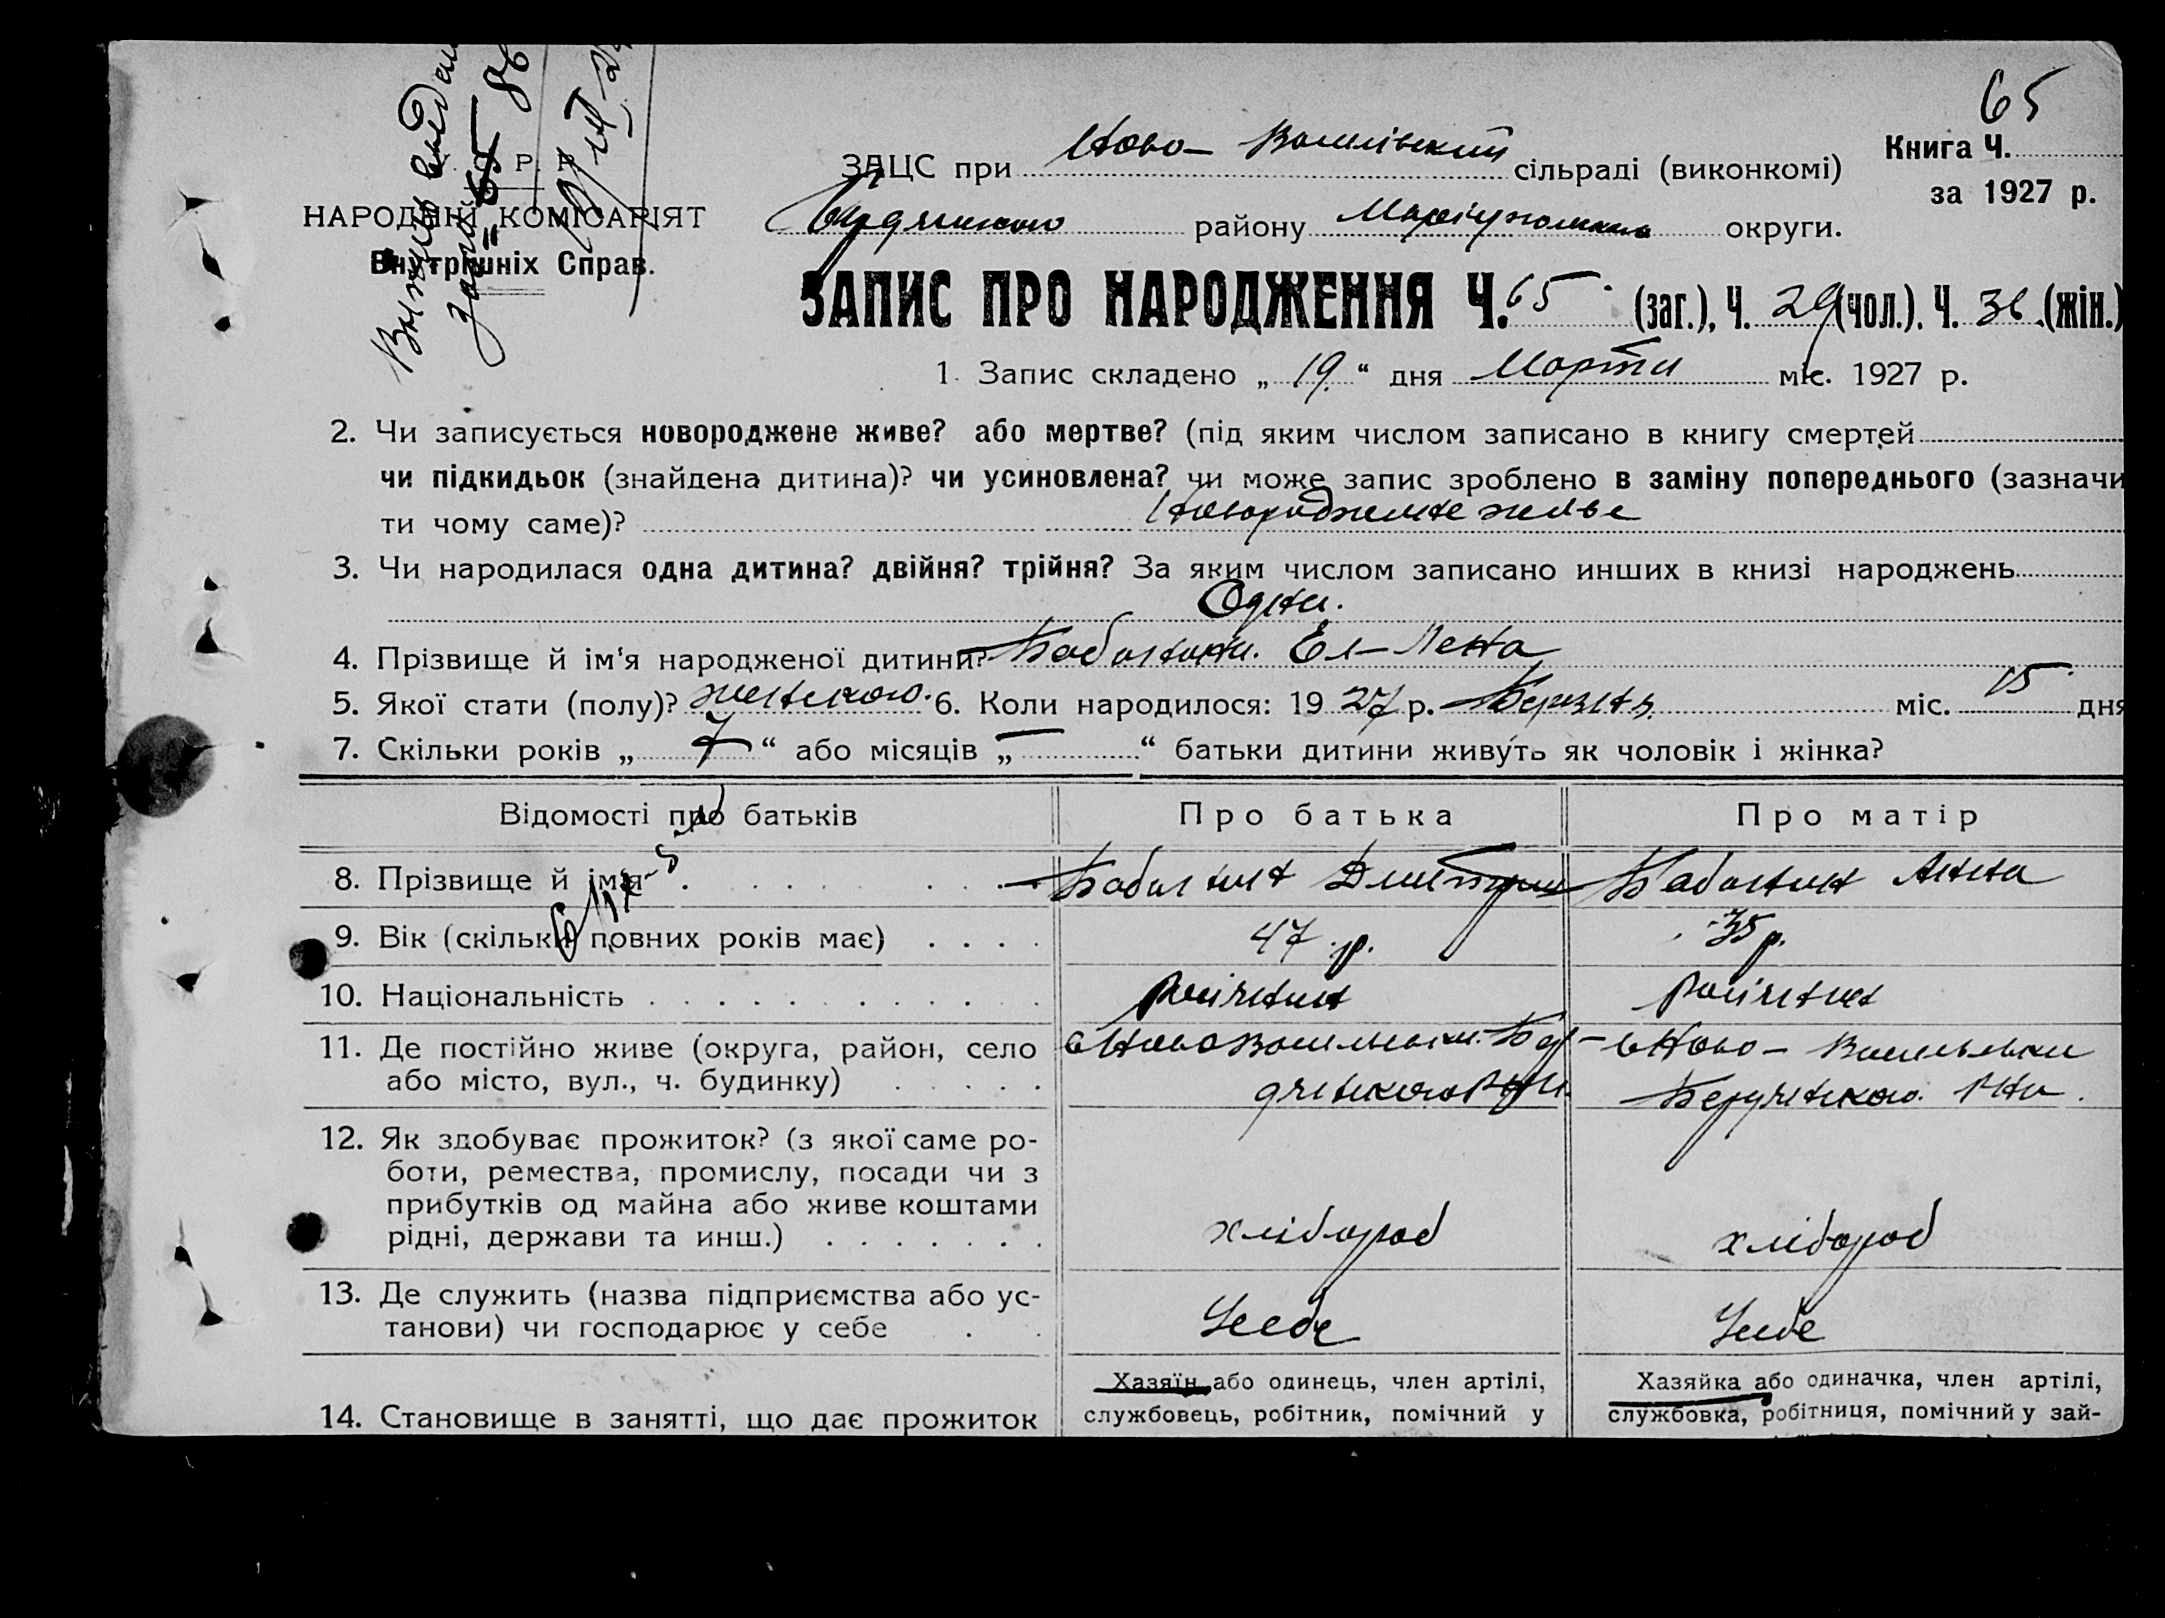 65
ЗАЦС при Ново-Василівский сільраді (виконкомі)
Книга Ч.
за 1927 р.
НАРОДНІЙ КОМІСАРІЯТ
Внутрішніх Справ.
Бердянського району Маріупольська округи.
ЗАПИС ПРО НАРОДЖЕННЯ Ч. 65 (заг.), Ч. 29 (чол.). Ч. 36 (жін.)
1. Запис складено „ 19. “ дня Марта міс. 1927 р.
2. Чи записується новороджене живе? або мертве? (під яким числом записано в книгу смертей
чи підкидьок (знайдена дитина)? чи усиновлена? чи може запис зроблено в заміну попереднього (зазначи
ти чому саме)? Новороджене живе
3. Чи народилася одна дитина? двійня? трійня? За яким числом записано инших в книзі народжень
Одна.
4. Прізвище й ім'я народженої дитини?
5. Якої стати (полу)? женского. 6. Коли народилося: 19 27 р. Березня міс. 15 дня
7. Скільки років „ 7 “ або місяців „ — “ батьки дитини живуть як чоловік і жінка?
Відомості про батьків Про батька Про матір
8. Прізвище й імя Бабанин Дмитрий Бабанин Анна
9. Вік (скільки повних років має) 47 р. 35 р.
10. Національність
11. Де постійно живе (округа, район, село
або місто, вул., ч. будинку)
12. Як здобуває прожиток? (з якої саме ро-
боти, ремества, промислу, посади чи з
прибутків од майна або живе коштами
рідні, держави та инш.) хлібороб хлібороб
13. Де служить (назва підприємства або ус-
танови) чи господарює у себе У себе У себе
14. Становище в занятті, що дає прожиток
Хазяїн або одинець, член артілі,
службовець, робітник, помічний у
Хазяйка або одиначка, член артілі,
службовка, робітниця, помічний у зай-